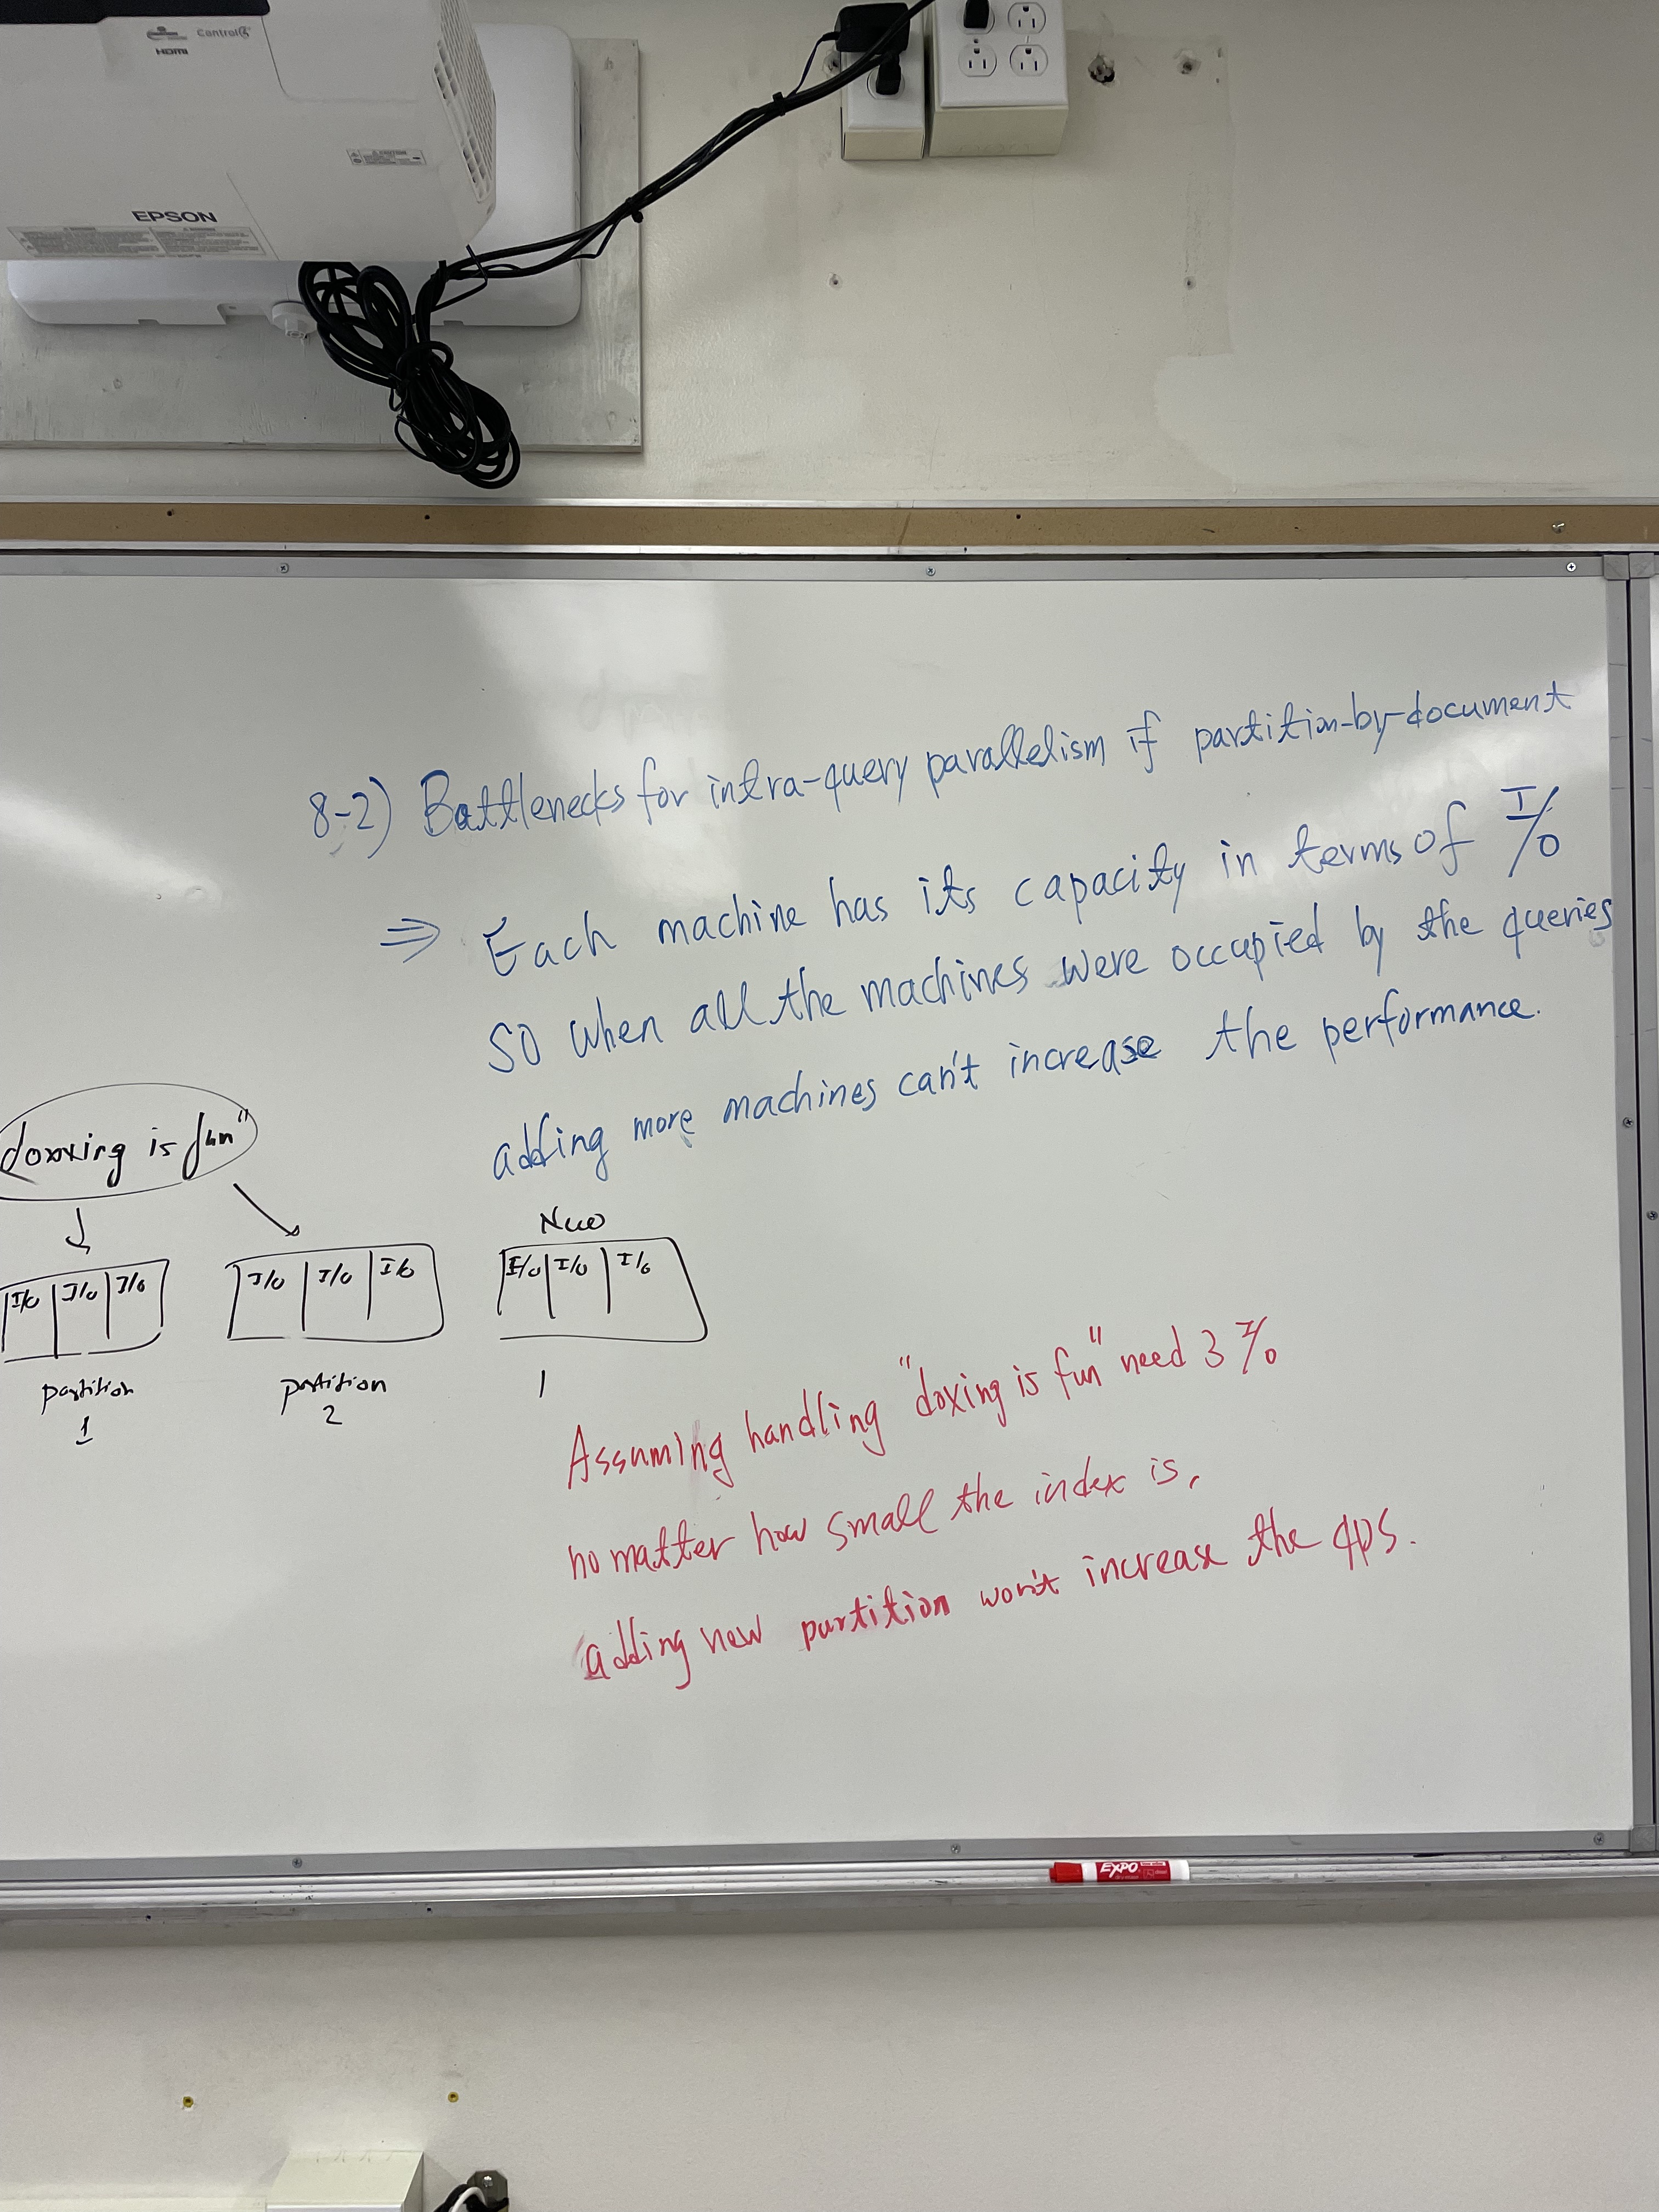 Control4
HDMI
EPSON
8-2) Bottlenecks for intra-query parallelism if partition-by-document
⇒ Each machine has its capacity in terms of I/O
So when all the machines were occupied by the queries
adding more machines can't increase the performance.
doxxing is fun"
New
I/O I/O I/O
I/O I/O I/O
I/O I/O I/O
partition
1
partition
2
1
Assuming handling "doxing is fun" need 3 I/O
no matter how small the index is,
adding new partition won't increase the qps.
EXPO